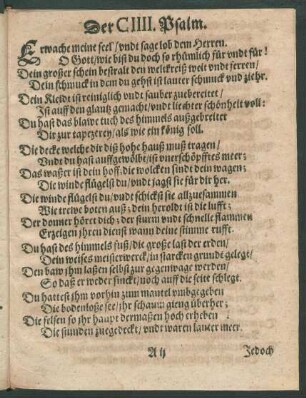 Der CIIII. Psalm.
Erwache meine seel / vndt sage lob dem Herren.
O Gott / wie bist du doch so rhümlich für vndt für!
Dein großer schein bestralt den weltkreiß weit vndt ferren /
Dein schmuck in dem du gehst ist lauter schmuck vnd ziehr.
Dein Kleidt ist reiniglich vndt sauber zuebereitet /
Ist auß den glantz gemacht / vndt liechter schönheit voll:
Du hast das blawe tuch des himmels außgebreitet
Dir zur tapezerey / als wie ein könig soll.
Die decke welche dir diß hohe hauß muß tragen /
Vndt du hast auffgewölbt / ist vnerschöpfftes meer;
Das waßer ist dein hoff: die wolcken sindt dein wagen;
Die winde flügelstu / vndt jagst sie für dir her.
Die winde flügelstu du / vndt schickst sie allzuesammen
Wie trewe boten auß; dein heroldt ist die lufft:
Der donner höret dich; der sturm vndt schnelle flammen
Erzeigen jhren dienst wann deine stimme rufft.
Du hast des himmels fuß / die große last der erden /
Dein weises meisterwerck / in starcken grundt gelegt /
Den baw jhm laßen selbst zur gegenwage werden /
So daß er weder sinckt / noch auff die seite schlegt.
Du hattest jhm vorhin zum mantel vmbgegeben
Die bodenloße see / jhr schaum gieng überher;
Die felsen so jhr haupt dermaßen hoch erheben
Die stunden zuegedeckt / vndt waren lauter meer.
A ij
Jedoch